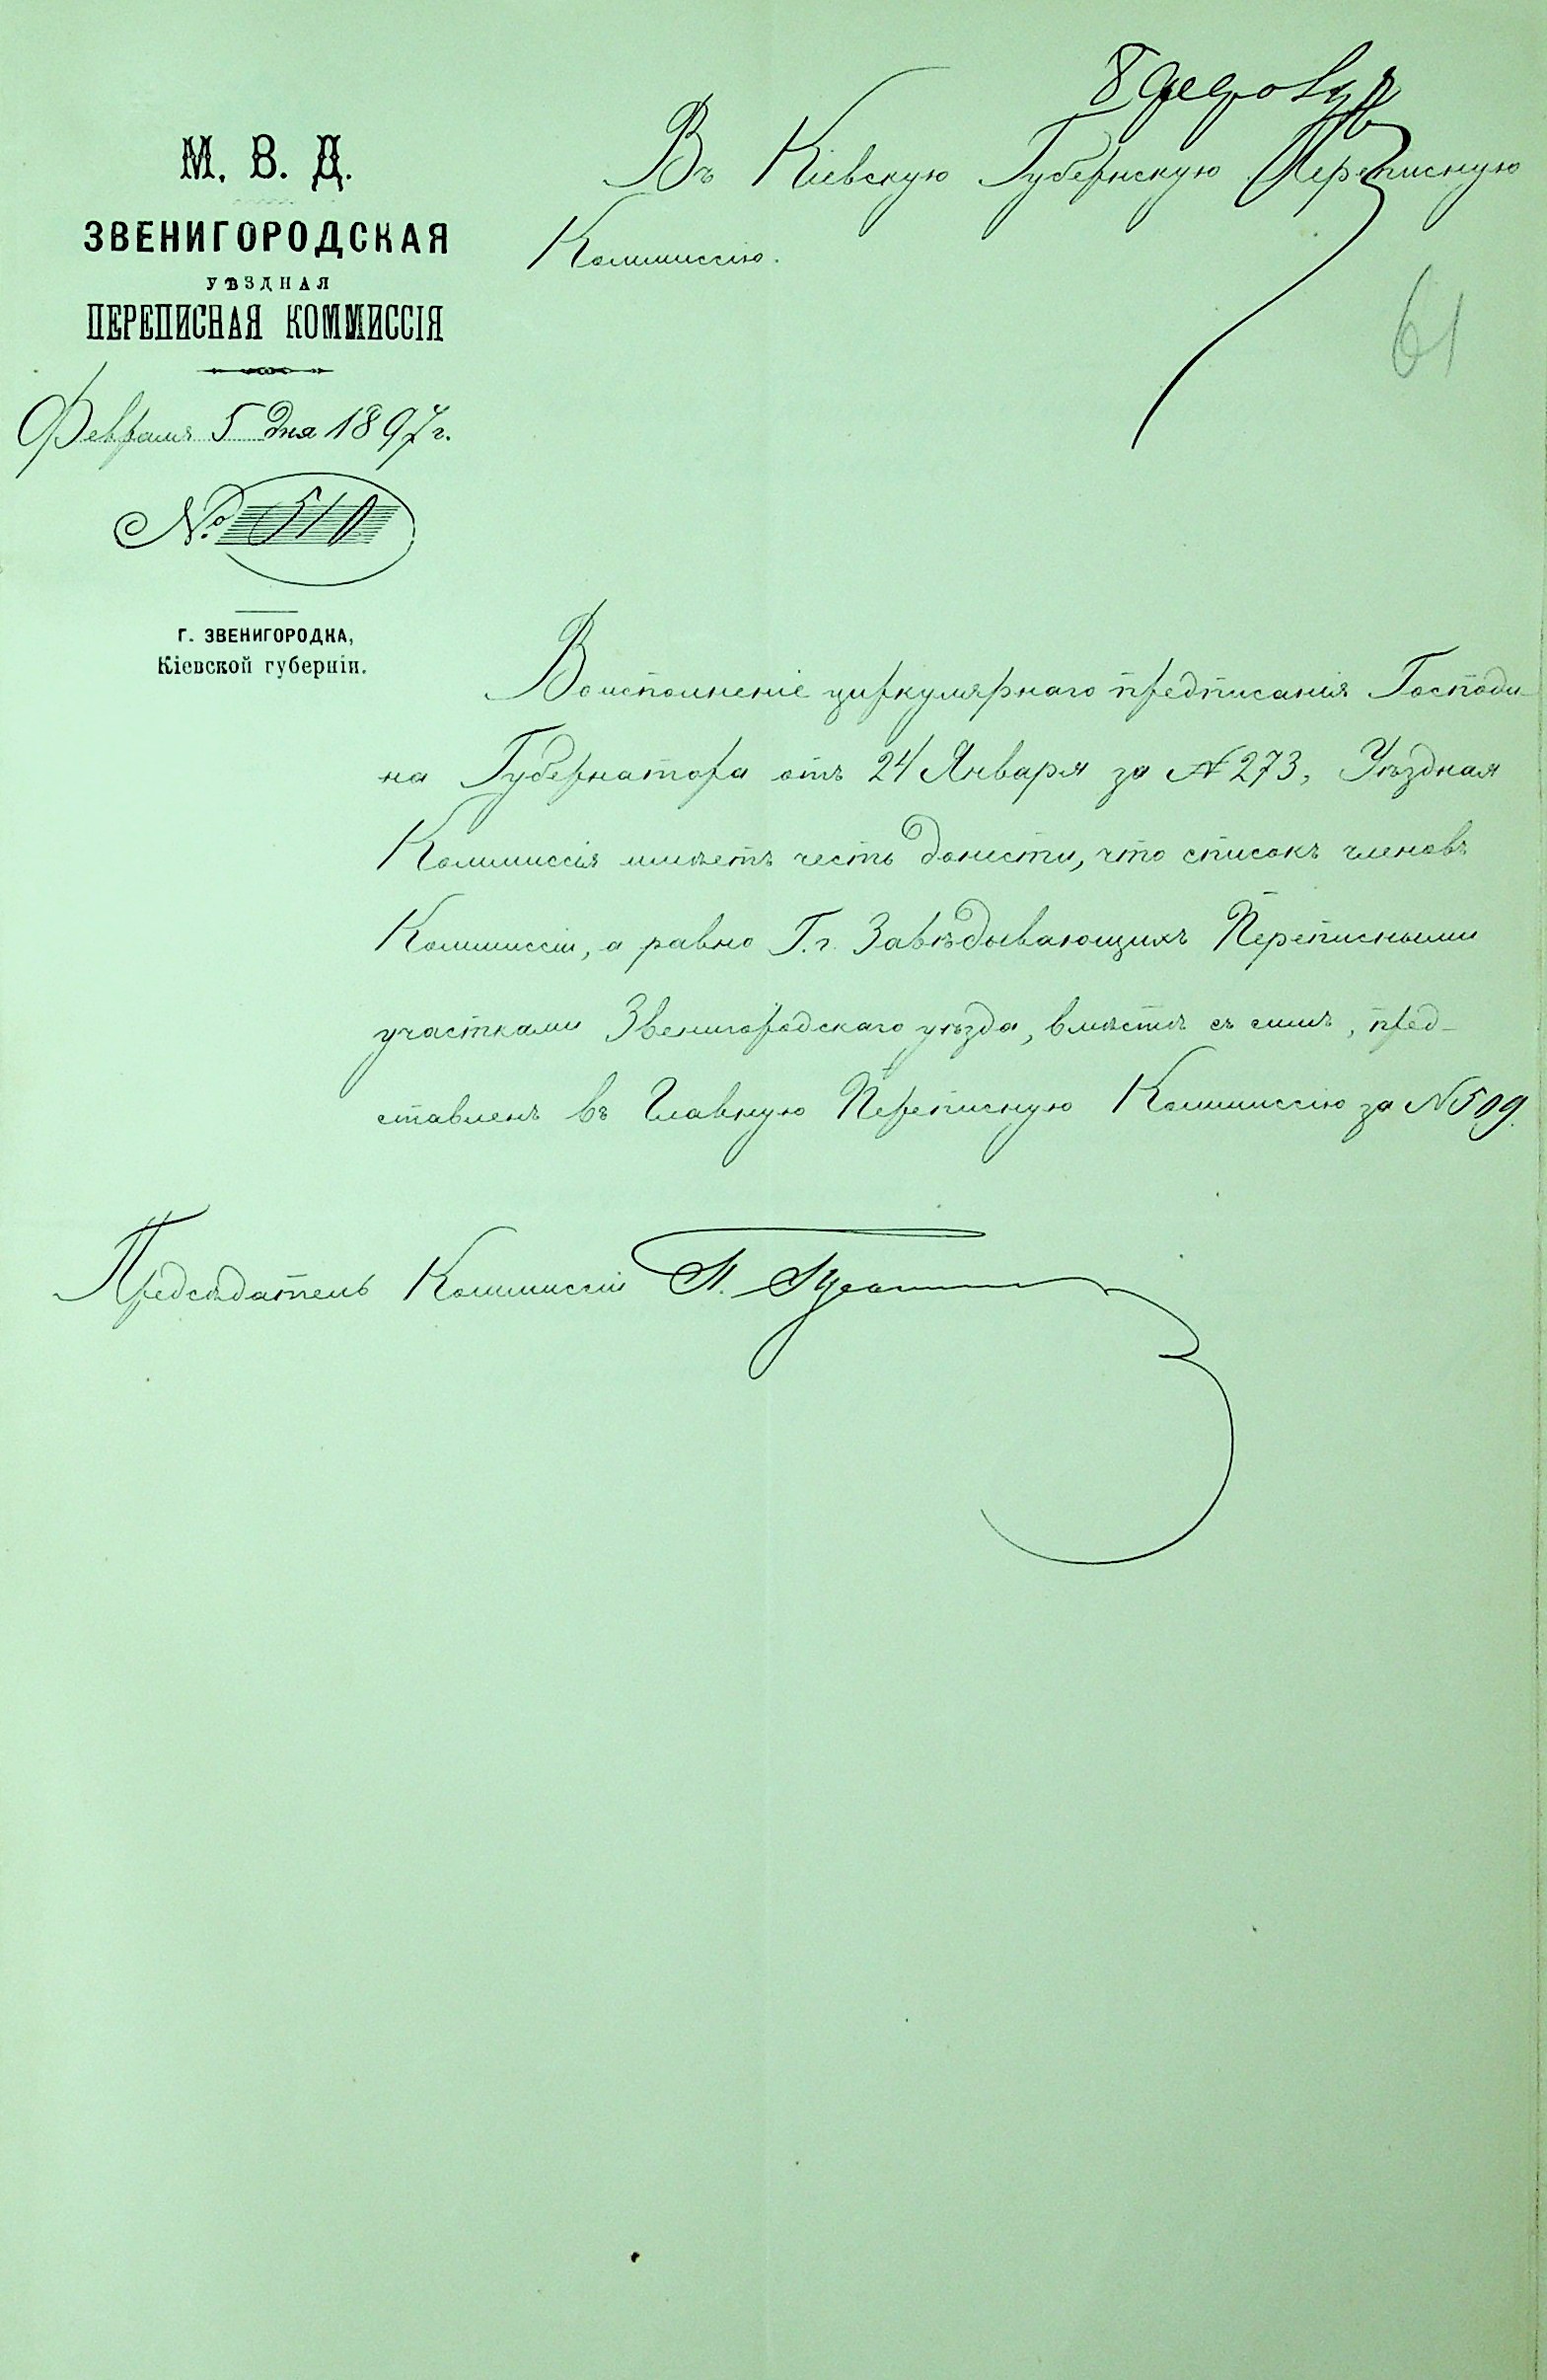 8 февраля
М. В. Д.
ЗВЕНИГОРОДСКАЯ
УѢЗДНАЯ
ПЕРЕПИСНАЯ КОММИССІЯ
Февраля 5 дня 1897 г.
№ 510
Г. ЗВЕНИГОРОДКА,
Кіевской губерніи.
Въ Кіевскую Губернскую Переписную
Коммиссію.
61
Воисполненіе циркулярнаго предписанія Господи-
на Губернатора отъ 24 Января за № 273, Уѣздная
Коммиссія имѣетъ честь донести, что списокъ членовъ
Коммиссіи, а равно Г.г. Завѣдывающихъ Переписными
участками Звенигородскаго уѣзда, вмѣстѣ съ симъ, пред-
ставленъ въ Главную Переписную Коммиссію за № 509.
Предсѣдатель Коммиссіи